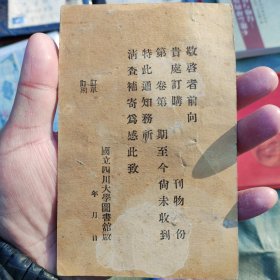 敬啓者前向
貴處訂購 刊物 份
第 卷第 期至今尙未收到
特此通知務祈
淸查補寄爲感此致
國立四川大學圖書館啟
年 月 日